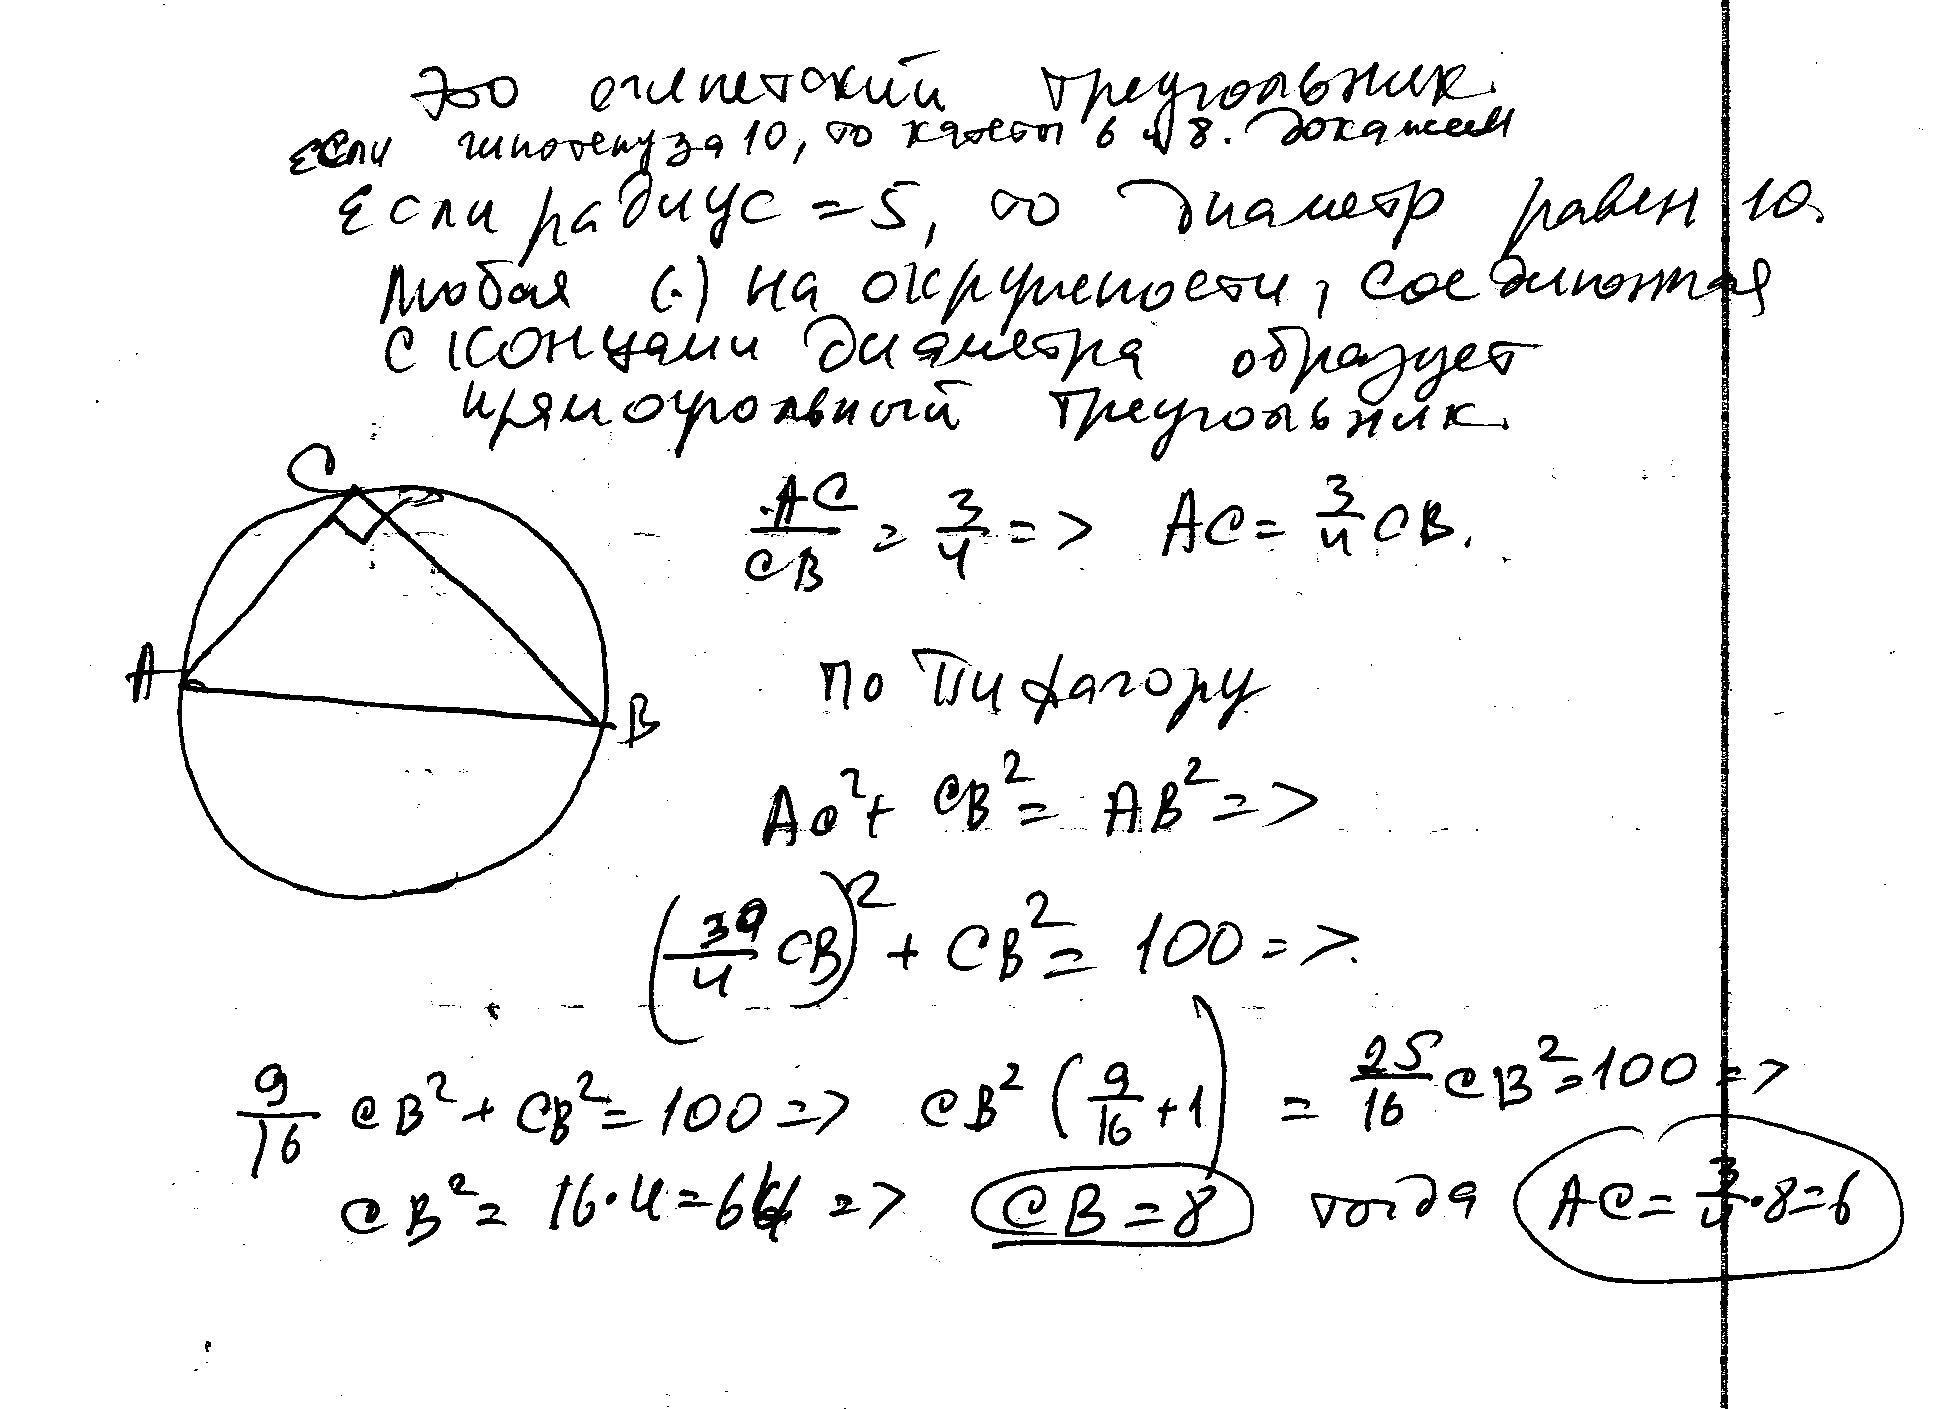 Это египетский треугольник.
Если гипотенуза 10, то катеты 6 и 8. Докажем
Если радиус = 5, то диаметр равен 10.
Любая (.) на окружности, соединенная
с концами диаметра образует
прямоугольный треугольник.
C
AC/CB = 3/4 => AC = 3/4 CB.
A
B
По Пифагору
AC² + CB² = AB² =>
(3/4 CB)² + CB² = 100 =>
9/16 CB² + CB² = 100 => CB² (9/16 + 1) = 25/16 CB² = 100 =>
CB² = 16·4 = 64 => CB = 8 тогда AC = 3/4·8 = 6